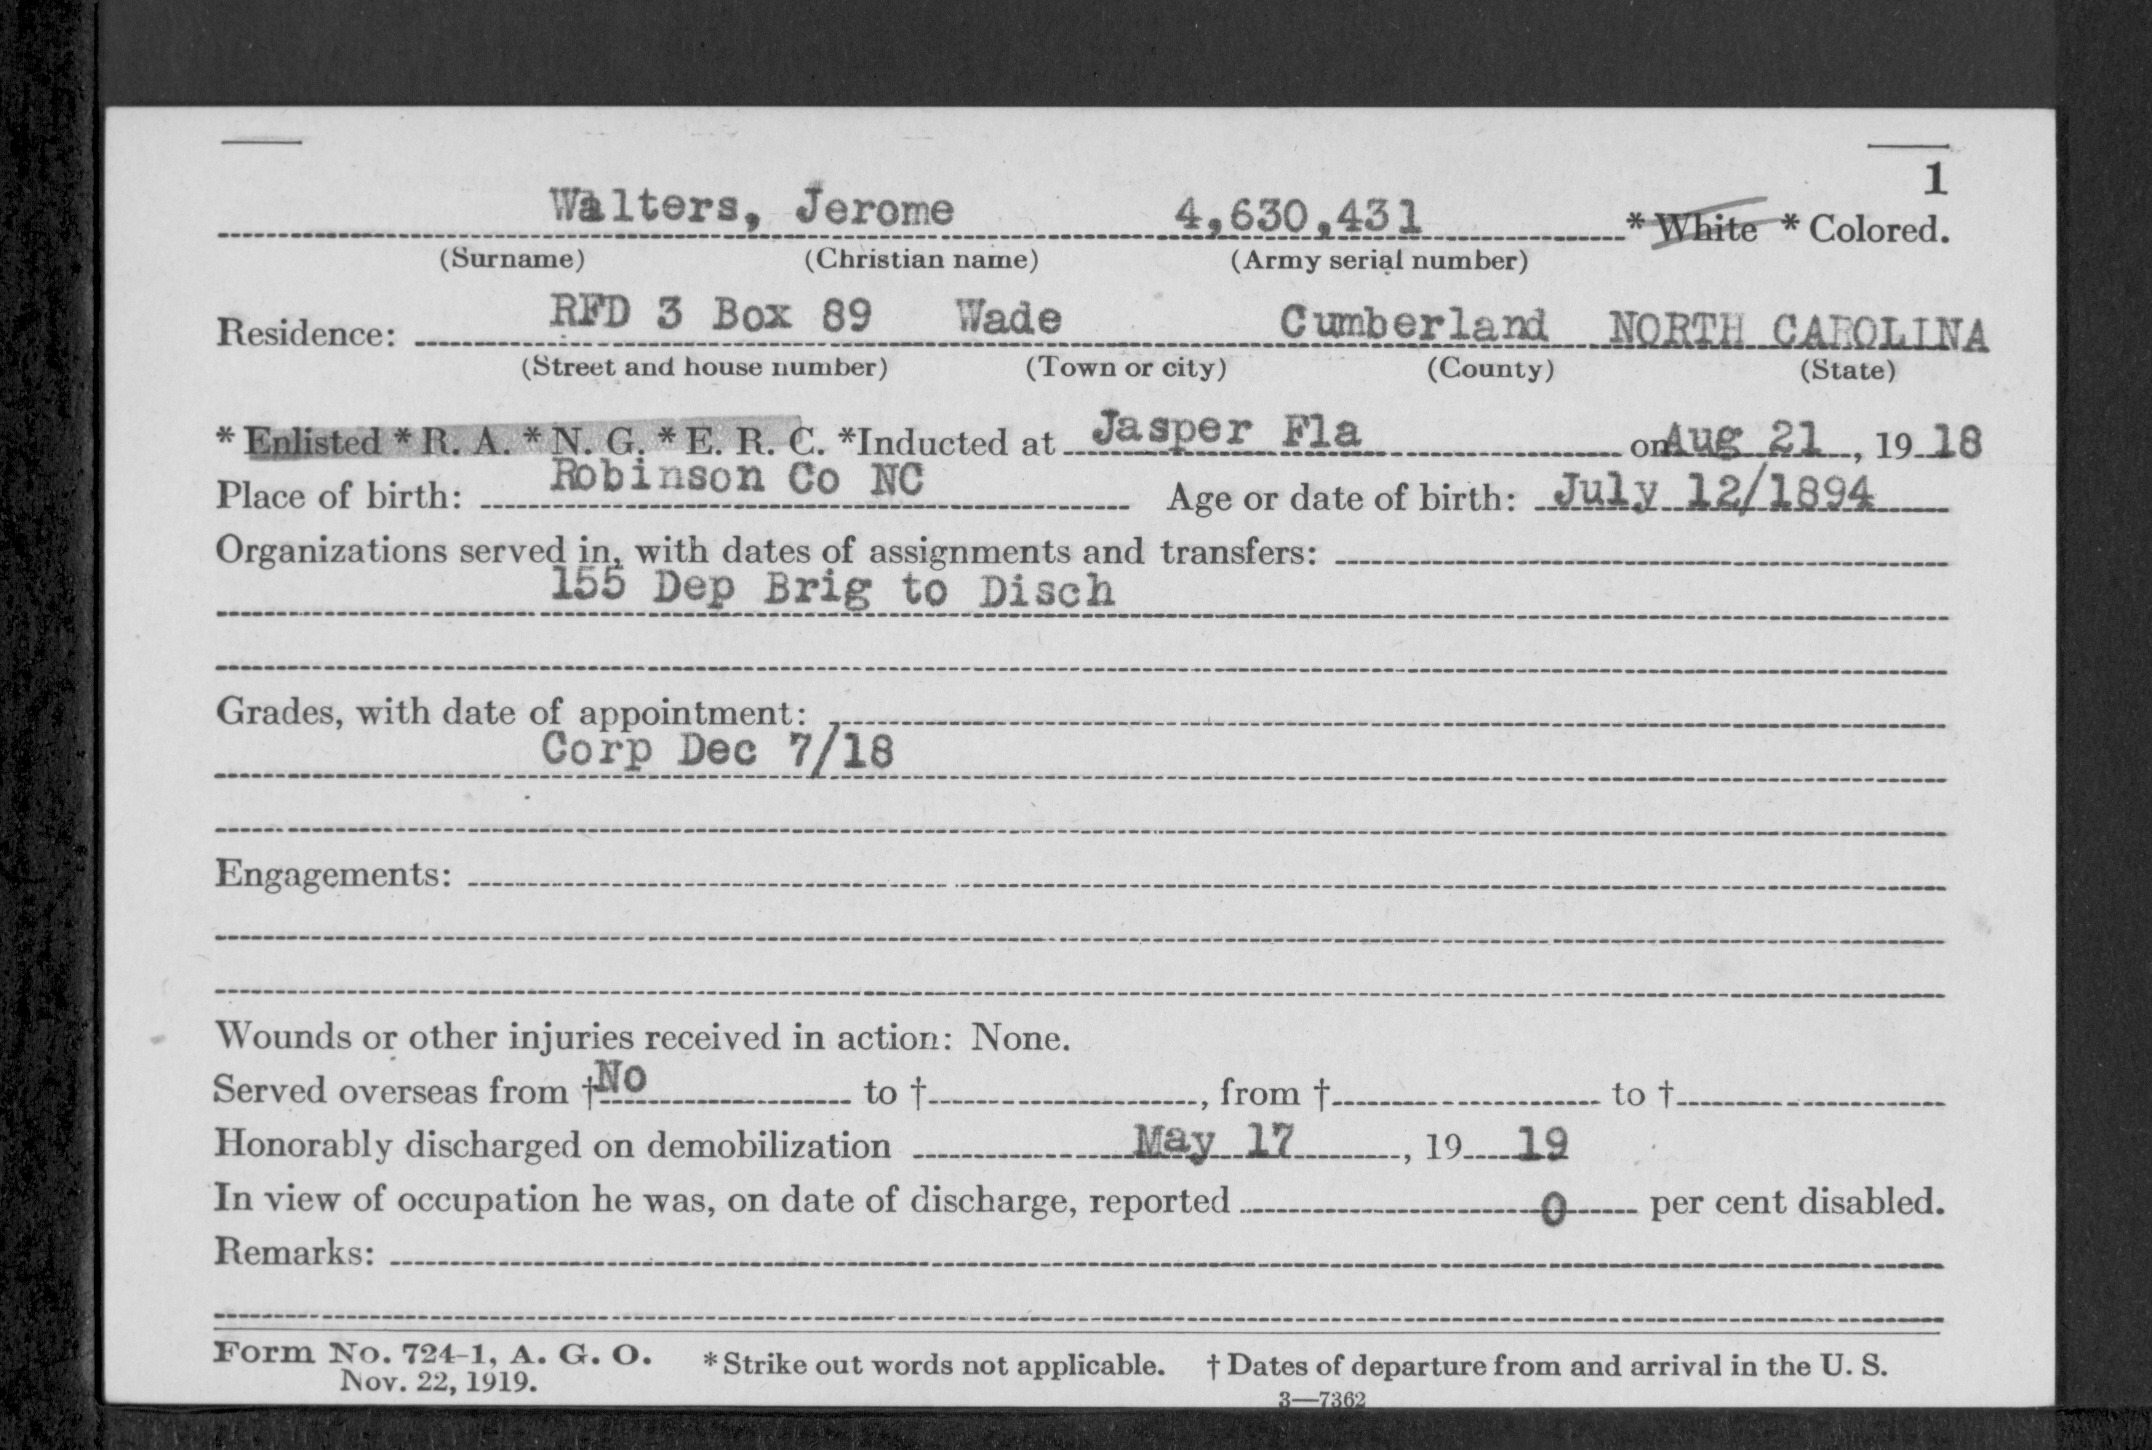 1
Walters, Jerome 4,630,431 * White * Colored.
(Surname) (Christian name) (Army serial number)
Residence: RFD 3 Box 89 Wade Cumberland NORTH CAROLINA
(Street and house number) (Town or city) (County) (State)
* Enlisted * R. A. * N. G. * E. R. C. *Inducted at Jasper Fla on Aug 21, 19 18
Place of birth: Robinson Co NC Age or date of birth: July 12/1894
Organizations served in, with dates of assignments and transfers:
155 Dep Brig to Disch
Grades, with date of appointment:
Corp Dec 7/18
Engagements:
Wounds or other injuries received in action: None.
Served overseas from † No to †, from † to †
Honorably discharged on demobilization May 17, 19 19
In view of occupation he was, on date of discharge, reported 0 per cent disabled.
Remarks:
Form No. 724-1, A. G. O. * Strike out words not applicable. † Dates of departure from and arrival in the U. S.
Nov. 22, 1919.
3—7362